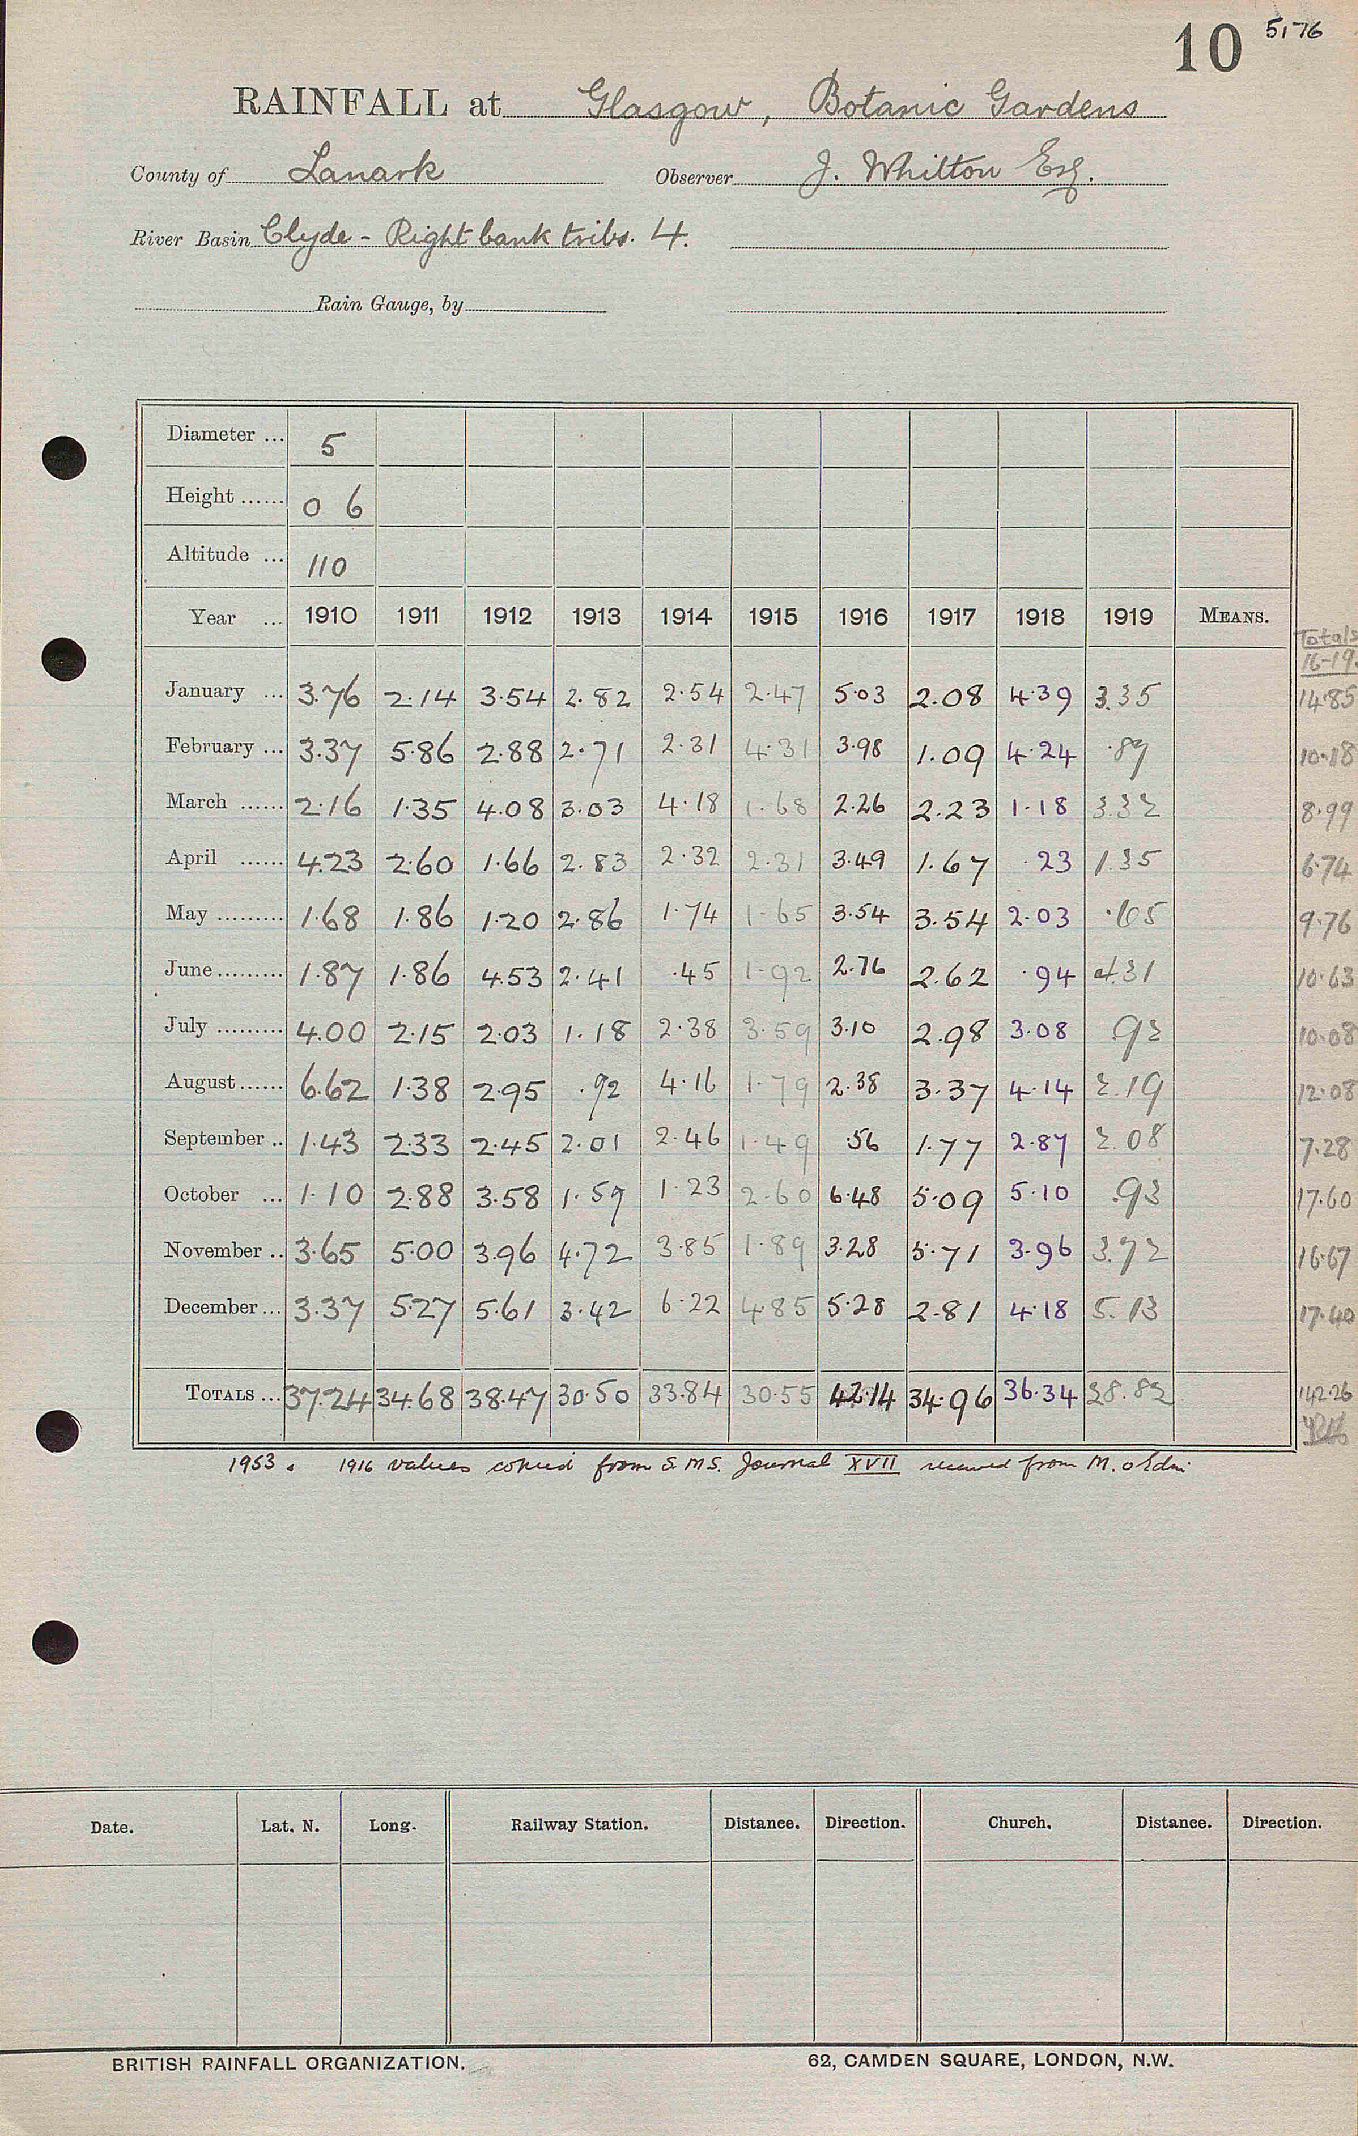 10 5176
RAINFALL at Glasgow, Botanic Gardens
County of Lanark Observer J. Whilton Esq.
River Basin Clyde - Right bank tribs. 4.
Rain Gauge, by
Diameter ... 5
Height ...... 0 6
Altitude ... 110
Year ... 1910 1911 1912 1913 1914 1915 1916 1917 1918 1919 MEANS. Totals 16-19.
January ... 3.76 2.14 3.54 2.82 2.54 2.47 5.03 2.08 4.39 3.35 14.85
February ... 3.37 5.86 2.88 2.71 2.31 4.31 3.98 1.09 4.24 .87 10.18
March ...... 2.16 1.35 4.08 3.03 4.18 1.68 2.26 2.23 1.18 3.32 8.99
April ...... 4.23 2.60 1.66 2.83 2.32 2.31 3.49 1.67 .23 1.35 6.74
May ......... 1.68 1.86 1.20 2.86 1.74 1.65 3.54 3.54 2.03 .65 9.76
June ......... 1.87 1.86 4.53 2.41 .45 1.92 2.76 2.62 .94 4.31 10.63
July ......... 4.00 2.15 2.03 1.18 2.38 3.59 3.10 2.98 3.08 .92 10.08
August ...... 6.62 1.38 2.95 .92 4.16 1.79 2.38 3.37 4.14 2.19 12.08
September .. 1.43 2.33 2.45 2.01 2.46 1.49 .56 1.77 2.87 2.08 7.28
October ... 1.10 2.88 3.58 1.59 1.23 2.60 6.48 5.09 5.10 .93 17.60
November .. 3.65 5.00 3.96 4.72 3.85 1.89 3.28 5.71 3.96 3.72 16.67
December ... 3.37 5.27 5.61 3.42 6.22 4.85 5.28 2.81 4.18 5.13 17.40
TOTALS ... 37.24 34.68 38.47 30.50 33.84 30.55 42.14 34.96 36.34 28.82 142.26
1953. 1916 values copied from S.M.S. Journal XVII received from M.O Edin
Date. Lat. N. Long. Railway Station. Distance. Direction. Church. Distance. Direction.
BRITISH RAINFALL ORGANIZATION. 62, CAMDEN SQUARE, LONDON, N.W.